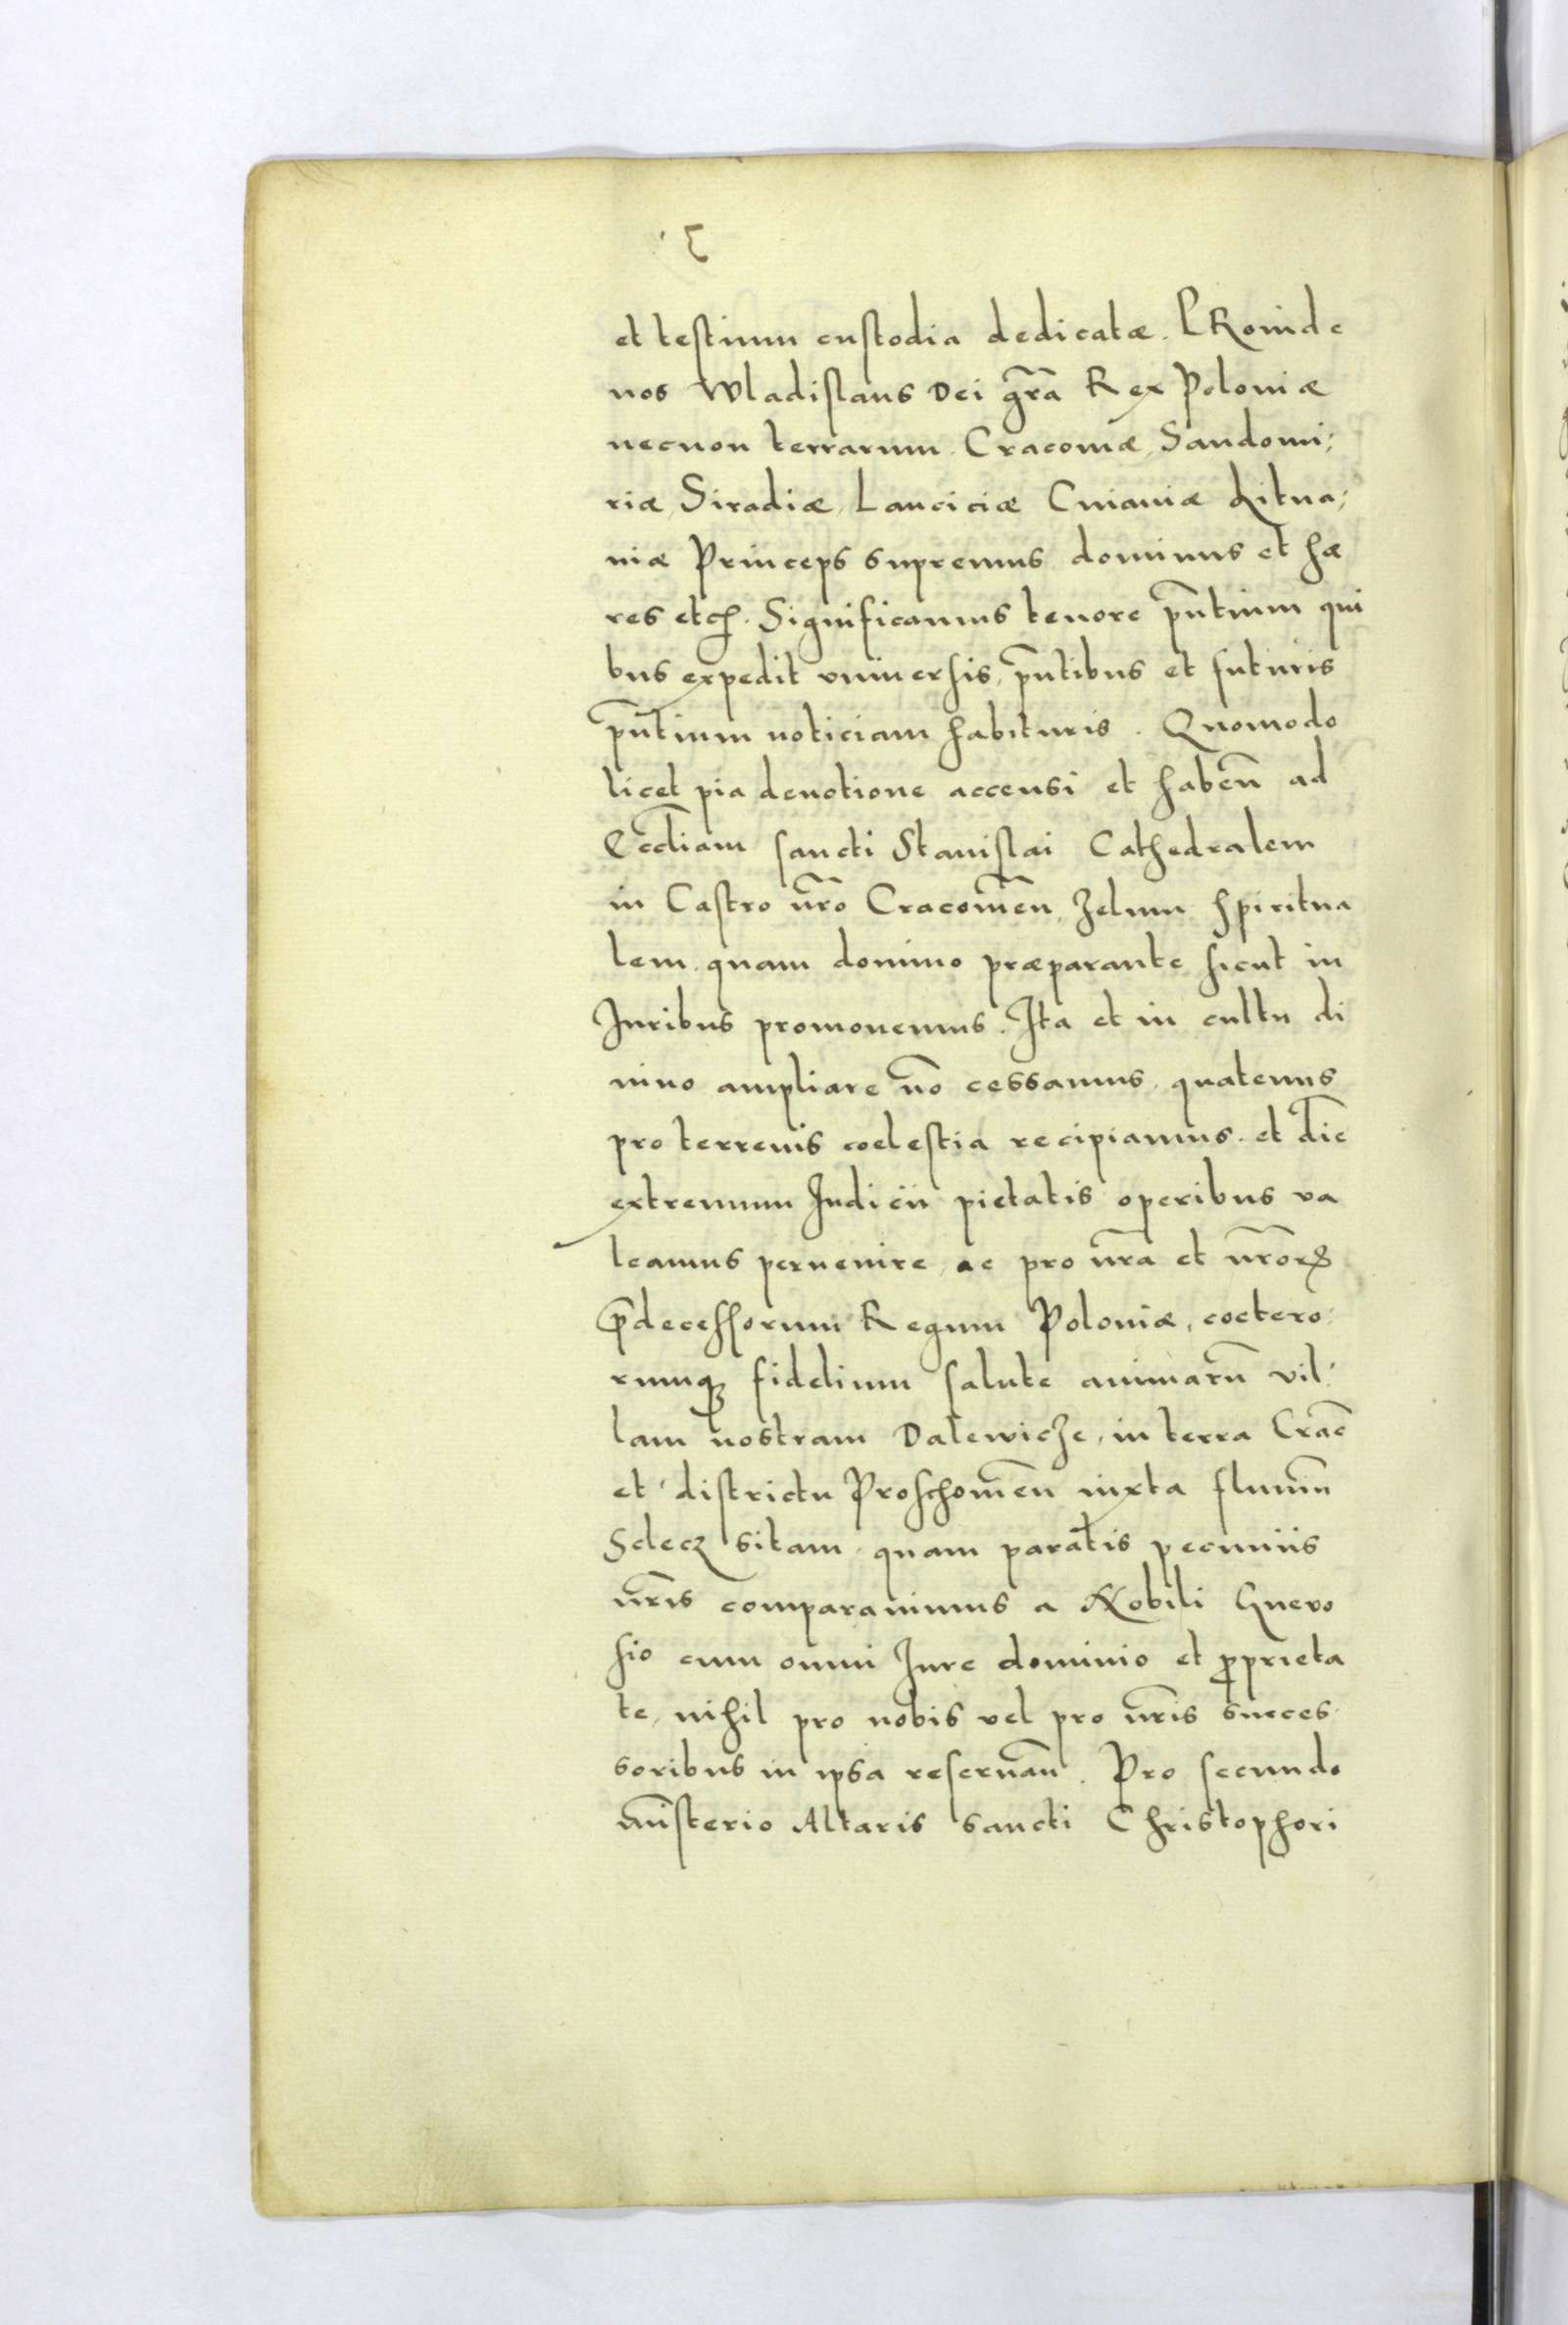 et testium custodia dedicatæ. PRoinde
nos Wladislaus Dei gr̃a Rex Poloniæ
necnon terrarum Cracouiæ, Sandomi;
riæ, Siradiæ, Lanciciæ Cuiauiæ Litua;
niæ Princeps supremus dominus et hæ
res etc. Significamus tenore p̃ntium qui
bus expedit vniuersis, p̃ntibus et futuris
p̃ntium noticiam habituris. Quomodo
licet pia deuotione accensi et habeñ ad
Eccl̃iam sancti Stanislai Cathedralem
in Castro nr̃o Cracouieñ, Zelum spiritua
lem quam domino præparante sicut in
Iuribus promouemus. Ita et in cultu di
uino ampliare nõ cessamus, quatenus
pro terrenis coelestia recipiamus. et diẽ
extremum Iudicii pietatis operibus va
leamus peruenire, ac pro nr̃a et nr̃orꝝ
p̃decessorum Regum Poloniæ, coetero
rumqꝫ fidelium salute animarũ vil
lam nostram Dalewicze, in terra Crac̃
et districtu Proschouieñ iuxta fluuiũ
Sclecz sitam quam paratis pecuniis
nr̃is comparauimus a Nobili Gneuo
sio cum omni Iure dominio et ꝓprieta
te, nihil pro nobis vel pro nr̃is succes
soribus in ipsa reseruañ. Pro secundo
Miñsterio Altaris sancti Christophori